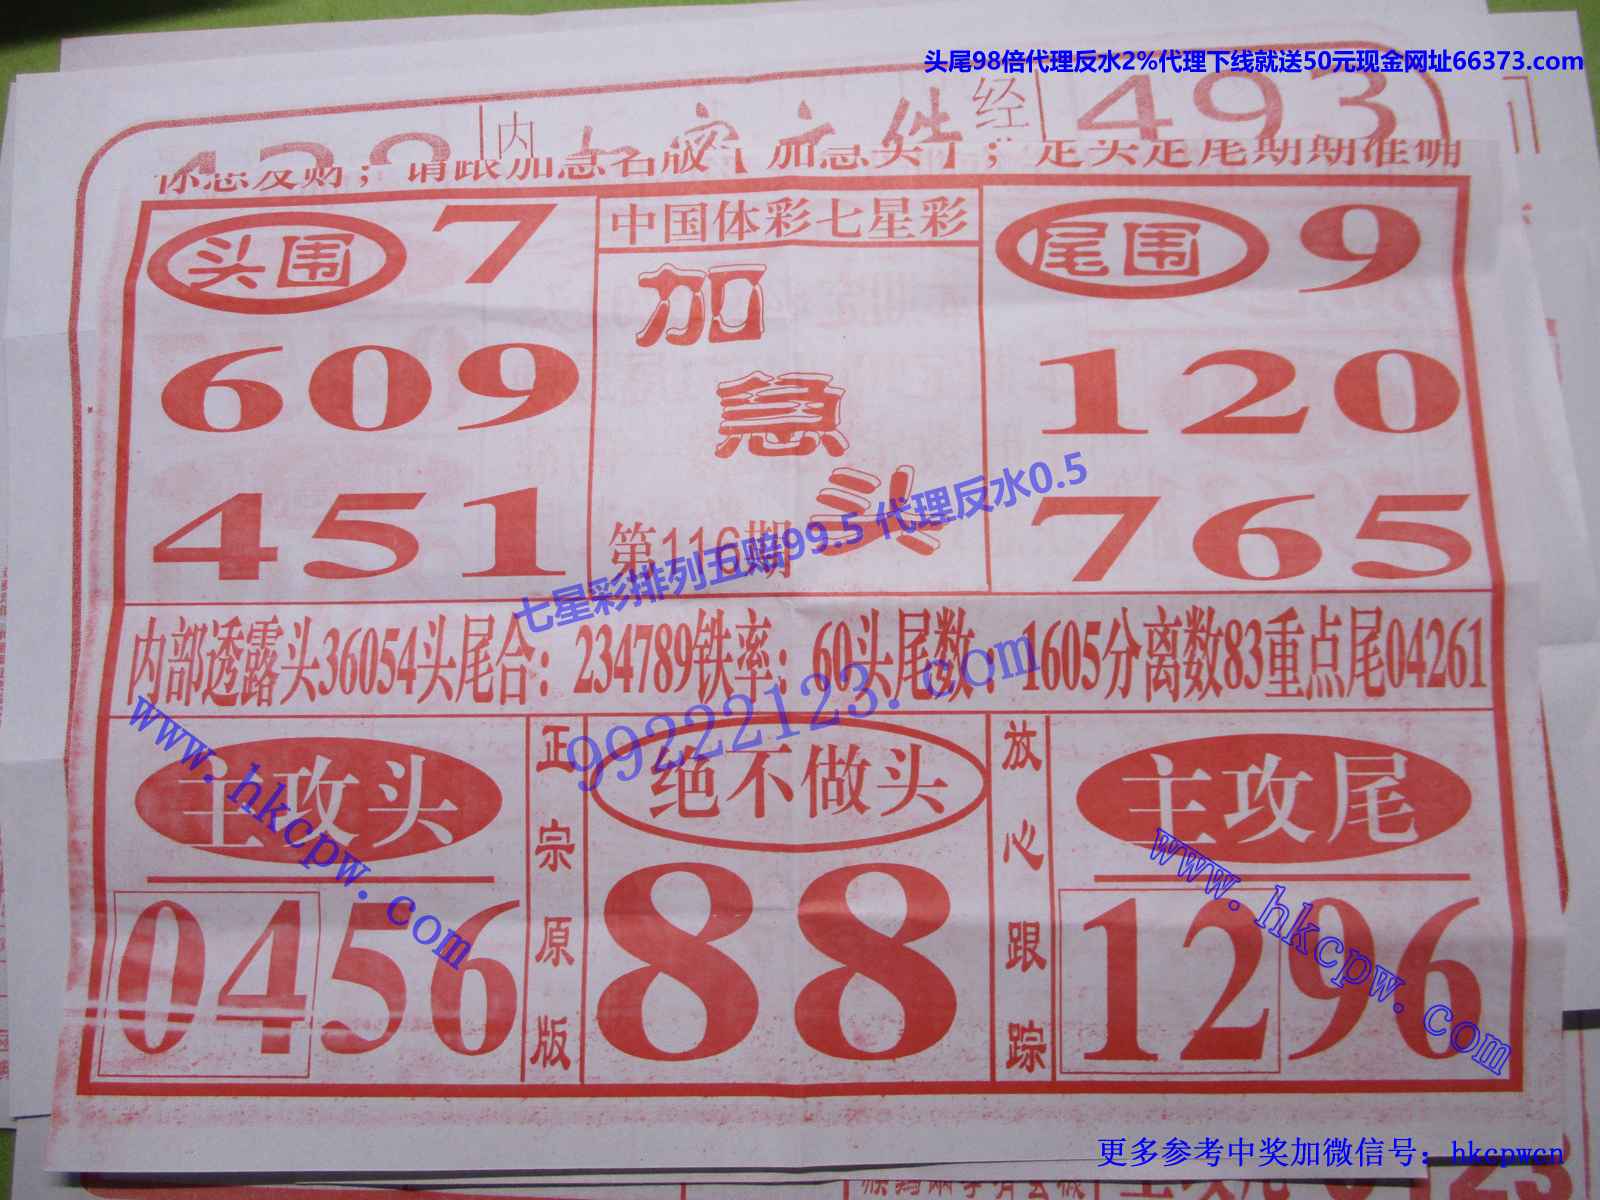 头尾98倍代理反水2%代理下线就送50元现金网址66373.com
内
经
493
你想发财；请跟加急名版【加急头】；定头定尾期期准确
头围 7
609
451
中国体彩七星彩
加急头
第116期
尾围 9
120
765
七星彩排列五赔99.5 代理反水0.5
内部透露头36054头尾合：234789铁率：60头尾数：1605分离数83重点尾04261
99222123.com
www.hkcpw.com
主攻头
0456
正宗原版
绝不做头
88
放心跟踪
主攻尾
1296
www.hkcpw.com
更多参考中奖加微信号：hkcpwcn